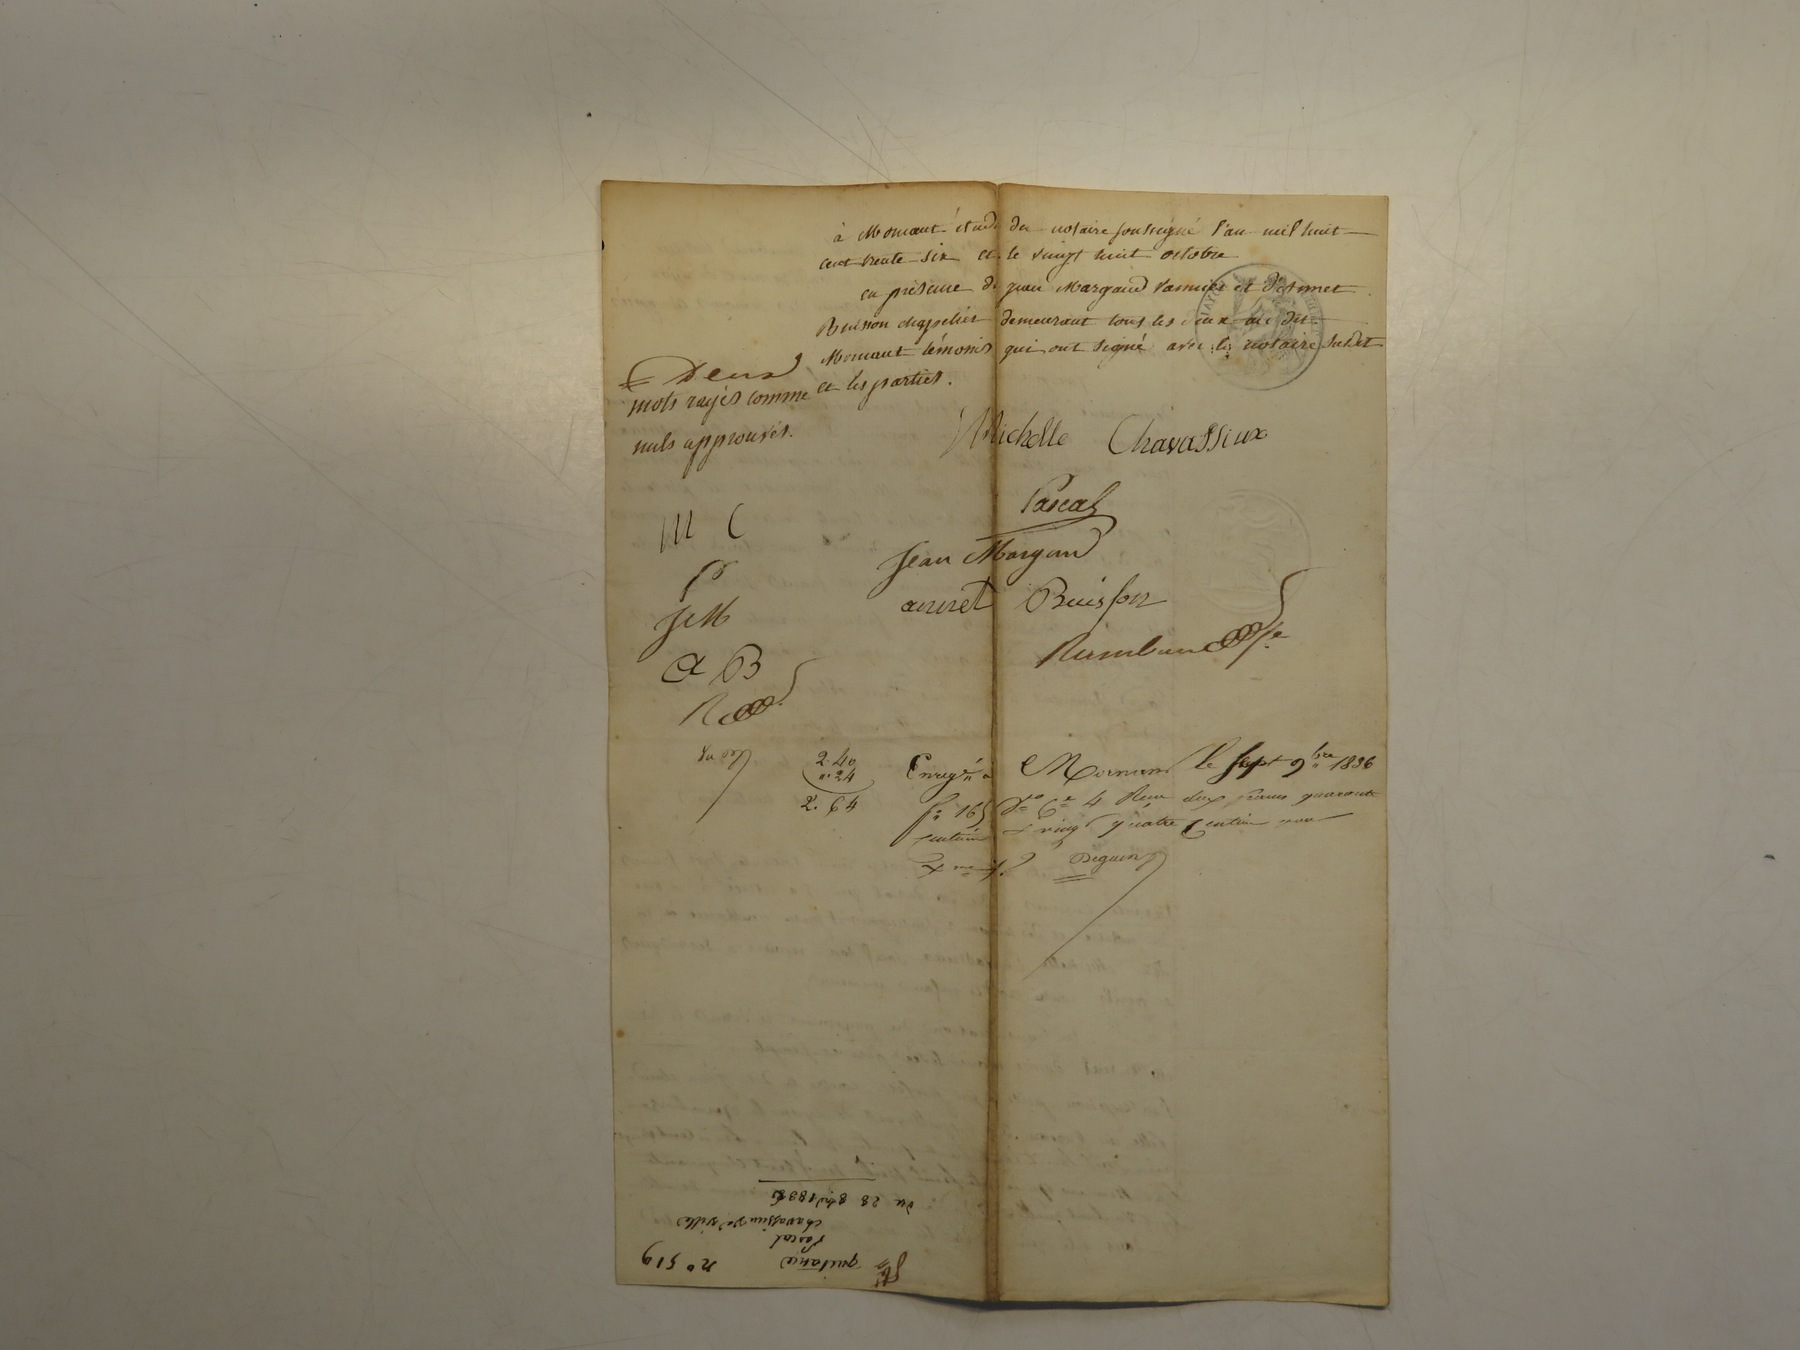 à Mornant étude du notaire soussigné l'an mil huit
cent trente six et le vingt huit octobre
en présence de jean Margaud et
Buisson chapelier demeurant tous les deux au dit
Mornant témoins qui ont signé avec le notaire susdit
et les parties.
Deux
mots rayés comme
nuls approuvés.
Michelle Chavassieux
Pascal
Jean Margaud
annet Buisson
M C
P
J M
A B
R
2.40
".24
2.64
Enregé à Mornant le sept 9bre 1836
fo 165 Vo Ce 4 Reçu deux francs quarante
centimes vingt quatre centimes pour
Deguin
no 519
quitance
Pascal
chavassieux
du 28 8bre 1836